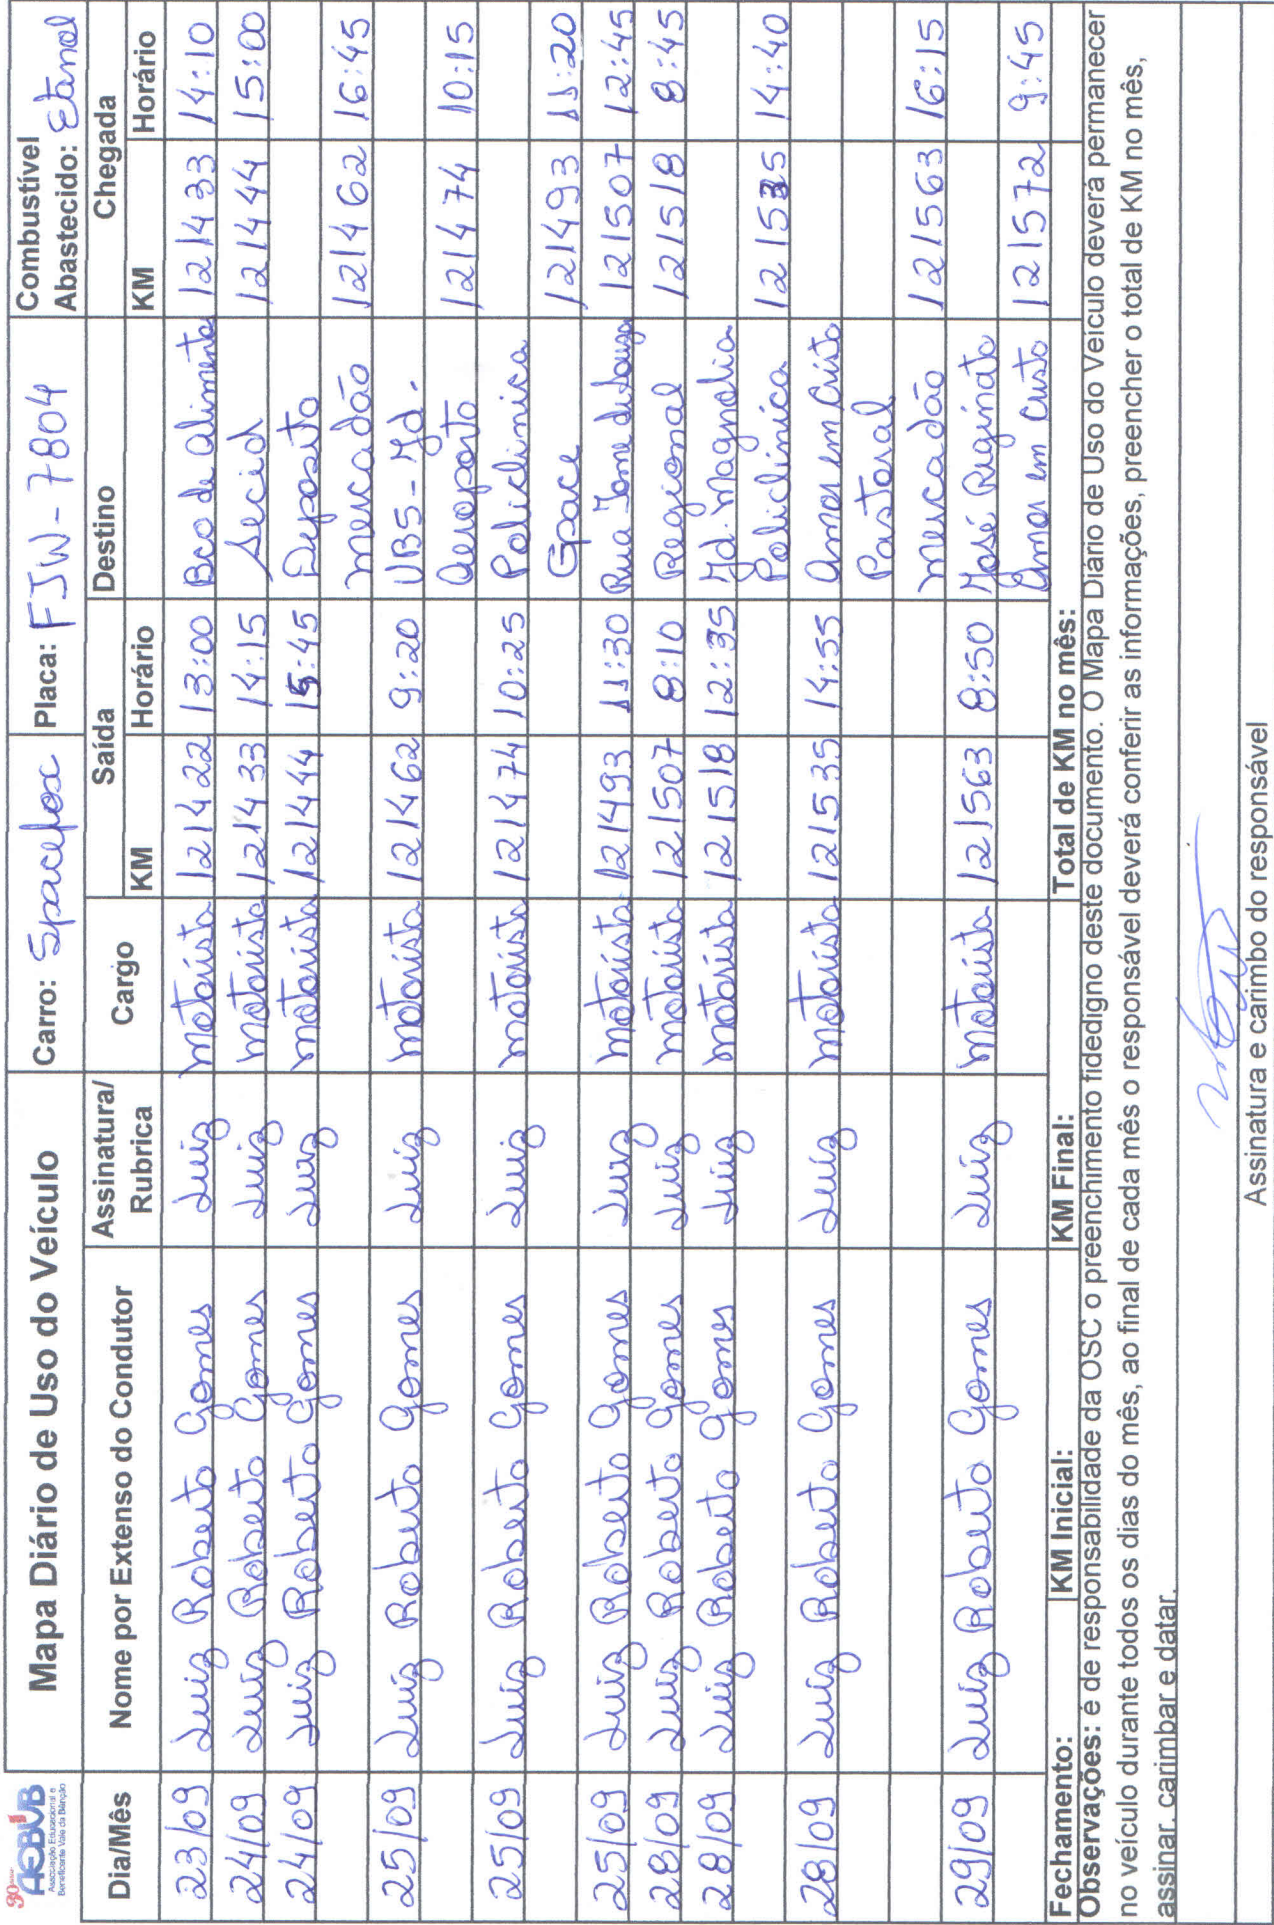 90 anos
AEBVB
Associação Educacional e
Beneficente Vale da Bênção
Mapa Diário de Uso do Veículo
Carro: Spacefox Placa: FJW-7804 Combustível Abastecido: Etanol
Dia/Mês Nome por Extenso do Condutor Assinatura/Rubrica Cargo Saída Destino Chegada
KM Horário KM Horário
23/09 Luiz Roberto Gomes Luiz motorista 121422 13:00 Bco de alimento 121433 14:10
24/09 Luiz Roberto Gomes Luiz motorista 121433 14:15 Secid 121444 15:00
24/09 Luiz Roberto Gomes Luiz motorista 121444 15:45 Deposito
mercadão 121462 16:45
25/09 Luiz Roberto Gomes Luiz motorista 121462 9:20 UBS-Jd.
aeroporto 121474 10:15
25/09 Luiz Roberto Gomes Luiz motorista 121474 10:25 Policlinica
Gpace 121493 11:20
25/09 Luiz Roberto Gomes Luiz motorista 121493 11:30 Rua Tome de Souza 121507 12:45
28/09 Luiz Roberto Gomes Luiz motorista 121507 8:10 Regional 121518 8:45
28/09 Luiz Roberto Gomes Luiz motorista 121518 12:35 Jd. Magnolia
Policlínica 121535 14:40
28/09 Luiz Roberto Gomes Luiz motorista 121535 14:55 Amor em Cristo
Pastoral
mercadão 121563 16:15
29/09 Luiz Roberto Gomes Luiz motorista 121563 8:50 José Reginato
Amor em Cristo 121572 9:45
Fechamento: KM Inicial: KM Final: Total de KM no mês:
Observações: é de responsabilidade da OSC o preenchimento fidedigno deste documento. O Mapa Diário de Uso do Veículo deverá permanecer
no veículo durante todos os dias do mês, ao final de cada mês o responsável deverá conferir as informações, preencher o total de KM no mês,
assinar, carimbar e datar.
Assinatura e carimbo do responsável